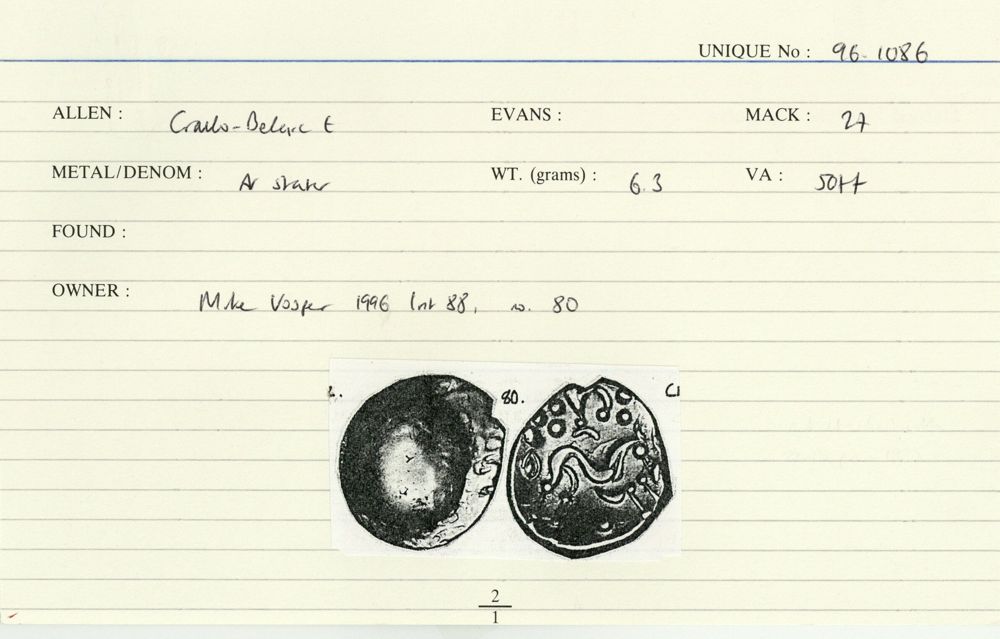 UNIQUE No : 96-1086
ALLEN : Gallo-Belgic E EVANS : MACK : 27
METAL/DENOM : AV stater WT. (grams) : 6.3 VA :
FOUND :
OWNER : Mike Vosper 1996 list 88, no. 80
80.
2
1